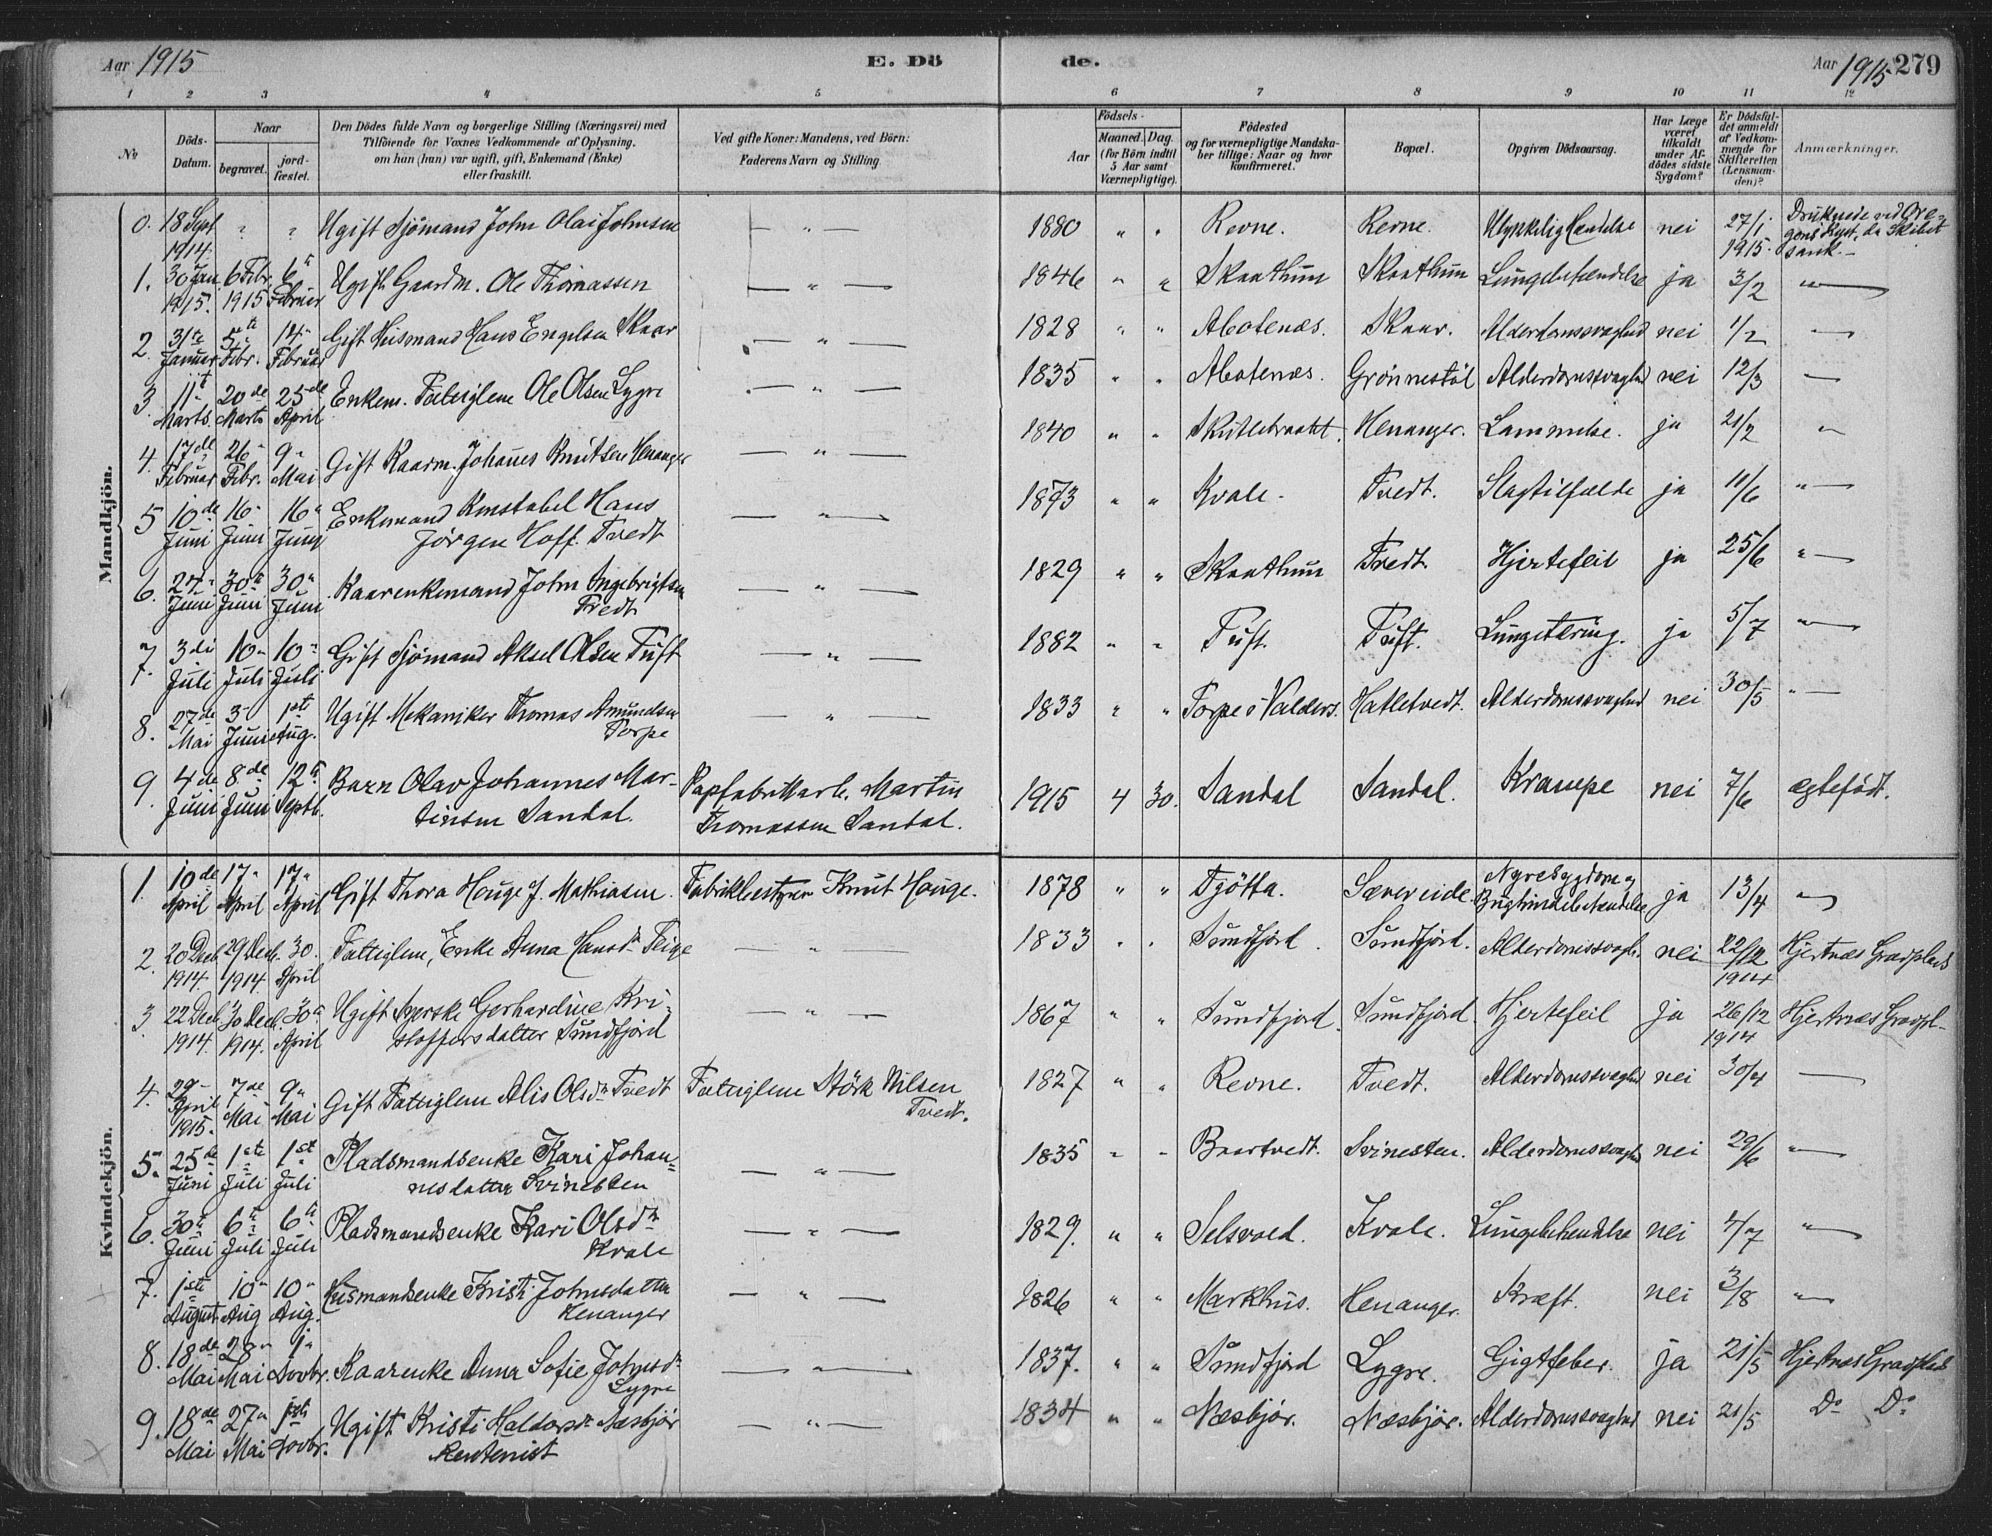 Aar 1915
E. Dö
de.
Aar 1915
279
1 2 3 4 5 6 7 8 9 10 11 12
No
Döds-
Datum.
Naar
begravet.
jord-
fæstet.
Den Dödes fulde Navn og borgerlige Stilling (Næringsvei) med
Tilföiende for Voxnes Vedkommende af Oplysning,
om han (hun) var ugift, gift, Enkemand (Enke)
eller fraskilt.
Ved gifte Koner: Mandens, ved Börn:
Faderens Navn og Stilling.
Födsels-
Aar
Maaned. Dag.
(for Börn indtil
5 Aar samt
Værnepligtige).
Födested
og for værnepligtige Mandska-
ber tillige: Naar og hvor
konfirmeret.
Bopæl.
Opgiven Dödsaarsag.
Har Læge
været
tilkaldt
under Af-
dödes sidste
Sygdom?
Er Dödsfal-
det anmeldt
af Vedkom-
mende for
Skifteretten
(Lensman-
den)?
Anmærkninger.
Mandkjön.
0. 18 Sept 1914 " " Ugift Sjömand John Olai Johnsen — " — 1880 " " Revne. Revne. Ulykkelig Hændelse nei 27/1 1915. Druknede ved Ore-
gons Kyst, da Skibet
sank.—
1. 30 Jan 1915. 6 Febr. 1915 6te Februar Ugift Gaardm. Ole Thomassen — " — 1846 " " Skaathun Skaathun Lungebetændelse ja 3/2 " —
2. 31te Januar 5te Febr. 14" Februar Gift Husmand Hans Engelsen Skaar — " — 1828 " " Abotenæs. Skaar. Alderdomssvaghed nei 1/2 " —
3 11t Marts. 20de Marts 25de April Enkem. Fattiglem Ole Olsen Lygre — " — 1835 " " Abotenæs. Grönnestöl Alderdomssvaghed nei 12/3 —
4. 17de Februar 26" Febr. 9" Mai Gift Kaarm. Johannes Knutsen Henanger — " — 1840 " " Henanger. Lammelse. ja 21/2 "
5 10de Juni 16" Juni 16" Juni Enkemand Konstabel Hans
Jörgen Hoff. Tvedt — " — 1873 " " Kvale. Tvedt. Slagtilfælde ja 11/6 " —
6. 24" Juni 30te Juni 30" Juni Kaarenkemand John Ingebrigtsen
Tvedt — " — 1829 " " Skaathun Tvedt. Hjertefeil ja 25/6 " —
7. 3di Juli 10" Juli 10" Juli Gift Sjömand Aksel Olsen Tuft — " — 1882 " " Tuft. Tuft. Lungetæring. ja 5/7 " —
8. 27de Mai 3" Juni 1ste Aug. Ugift Mekaniker Thomas Amundsen
Torpe — " — 1833 " " Torpe i Valders. Hatletvedt. Alderdomssvaghed nei 30/5 " —
9. 4de Juni 8de Juni 12te Septb. Barn Olav Johannes Mar-
tinsen Sandal. Papfabrikarb. Martin
Thomassen Sandal. 1915 4 30. Sandal Sandal. Krampe nei 7/6 ægtefödt.
Kvindekjön.
1. 10de April 17" April 17" April Gift Thora Houge f. Mathiasen. Fabrikbestyrer Knut Houge. 1878 " " Tjötta. Sævereide. Nyresygdom og
Bughindebetændelse ja 13/4 "
2. 20 Decb. 1914. 29 Decb. 1914. 30. April Fattiglem, Enke Anna Hansdr Teige — " — 1833 " " Sundfjord. Sundfjord. Alderdomssvagh. nei 22/12 1914 Hjertnæs Gravplads
3 22 Decb. 1914. 30 Decb. 1914. 30" April Ugift Gerhardine Kri-
stoffersdatter Sundfjord — " — 1867 " " Sundfjord. Sundfjord. Hjertefeil ja 26/12 1914 Hjertnæs Gravpl—
4. 29" April 1915. 7de Mai 9" Mai Gift Fattiglem Alis Olsdr Tvedt Fattiglem Störk Nilsen
Tvedt. 1827 " " Revne. Tvedt. Alderdomssvaghed nei 30/4 —
5. 25de Juni 1ste Juli 1st Juli Pladsmandsenke Kari Johan-
nesdatter Svinesten — " — 1835 " " Baartvedt. Svinesten. Alderdomssvaghed nei 29/6 " —
6. 30te Juni 6te Juli 6te Juli Pladsmandsenke Kari Olsdtr
Kvale — " — 1829. " " Selsvold. Kvale. Lungebetændelse nei 4/7 " —
7. 1ste August 10" Aug 10" Aug. Husmandsenke Kristi Johnsdatter
Henanger — " — 1826 " " Markhus. Henanger. Kræft. nei 3/8 " —
8. 18de Mai 28" Mai 1" Novbr. Kaarenke Anna Sofie Johnsdr
Lygre — " — 1837. " " Sundfjord Lygre. Gigtfeber. ja 21/5 Hjertnæs Gravplads
9. 18de Mai 27" Mai 1ste Novbr. Ugift Kristi Haldorsdr Næsbjör
Rentenist — " — 1834 " " Næsbjör. Næsbjör. Alderdomssvaghed nei 21/5 Do Do